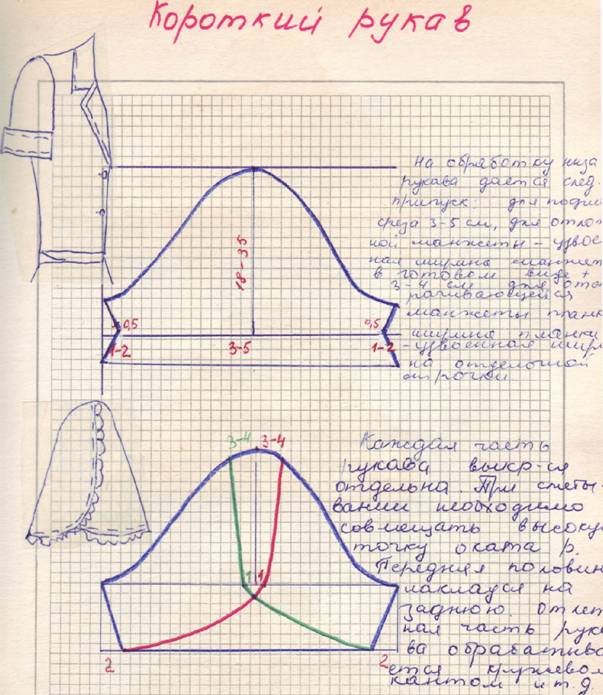 Короткий рукав
На обработку низа
рукава дается след.
припуск: для подши
среза 3-5 см, для отлож
ной манжеты - удвоен
ная ширина манжет
в готовом виде +
3-4 см, для отво
рачивающейся
манжеты планк
ширина планки
- удвоенная шири
на отделочной
строчки
18-35
0,5
0,5
1-2
3-5
1-2
3-4
3-4
Каждая часть
рукава выкр-ся
отдельна При сметы-
вании необходимо
совмещать высоку
точку оката р.
Передняя половин
накладуся на
заднюю. отлет
ная часть рука
ва обрабатыва
ется кружевом
кантом и т.д.
1
1
2
2